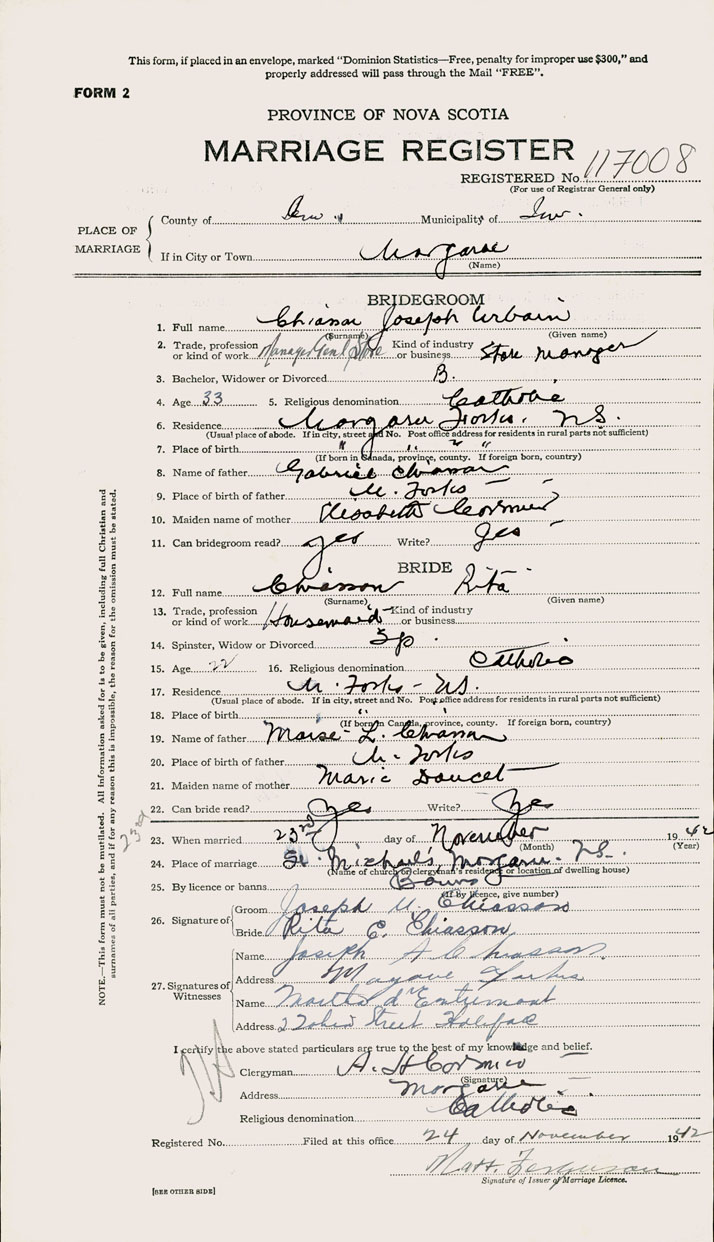 This form, if placed in an envelope, marked "Dominion Statistics—Free, penalty for improper use $300," and
properly addressed will pass through the Mail "FREE".
FORM 2
PROVINCE OF NOVA SCOTIA
MARRIAGE REGISTER
REGISTERED No. 117008
(For use of Registrar General only)
PLACE OF MARRIAGE
County of Inv. Municipality of Inv.
If in City or Town Margaree
(Name)
BRIDEGROOM
1. Full name Chiasson Joseph Urbain
(Surname) (Given name)
2. Trade, profession or kind of work Manager Genl Store Kind of industry or business Store Manager
3. Bachelor, Widower or Divorced B.
4. Age 33 5. Religious denomination Catholic
6. Residence Margaree Forks, N.S.
(Usual place of abode. If in city, street and No. Post office address for residents in rural parts not sufficient)
7. Place of birth " " " "
(If born in Canada, province, county. If foreign born, country)
8. Name of father Gabriel Chiasson
9. Place of birth of father M. Forks
10. Maiden name of mother Elisabeth Cormier
11. Can bridegroom read? yes Write? yes
BRIDE
12. Full name Chiasson Rita
(Surname) (Given name)
13. Trade, profession or kind of work Housemaid Kind of industry or business
14. Spinster, Widow or Divorced Sp.
15. Age 22 16. Religious denomination Catholic
17. Residence M. Forks - N.S.
(Usual place of abode. If in city, street and No. Post office address for residents in rural parts not sufficient)
18. Place of birth " "
(If born in Canada, province, county. If foreign born, country)
19. Name of father L. Chiasson
20. Place of birth of father M. Forks
21. Maiden name of mother Marie Doucet
22. Can bride read? Yes Write? Yes
23. When married 23rd day of November 1942
(Month) (Year)
24. Place of marriage St. Michael's, Margaree. N.S.
(Name of church or clergyman's residence or location of dwelling house)
25. By licence or banns Banns
(If by licence, give number)
26. Signature of
Groom Joseph U. Chiasson
Bride Rita C. Chiasson
27. Signatures of Witnesses
Name Joseph A Chiasson
Address Magaree Forks
Name Martha d'Entremont
Address Street Halifax
I certify the above stated particulars are true to the best of my knowledge and belief.
Clergyman A. H Cormier
(Signature)
Address Margaree
Religious denomination Catholic
Registered No. Filed at this office 24 day of November 1942
Matt. Ferguson
Signature of Issuer of Marriage Licence.
[SEE OTHER SIDE]
NOTE.—This form must not be mutilated. All information asked for is to be given, including full Christian and
surnames of all parties, and if for any reason this is impossible, the reason for the omission must be stated.
23rd